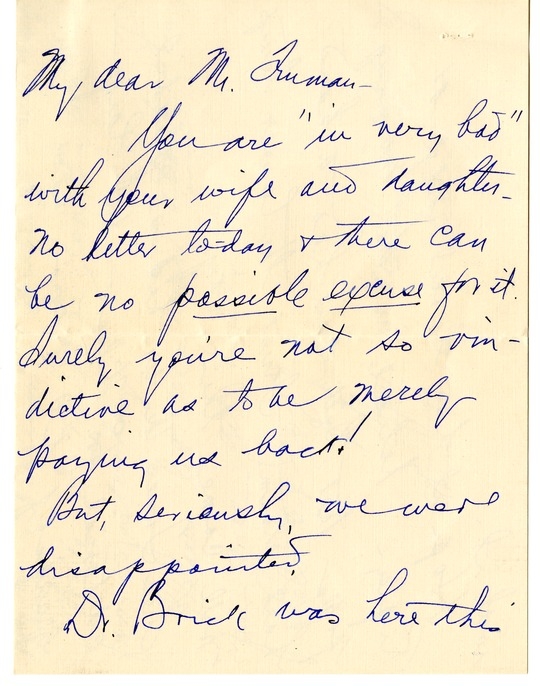 My dear Mr. Truman—
You are "in very bad"
with your wife and daughter—
No letter to-day & there can
be no possible excuse for it.
Surely you're not so vin-
dictive as to be merely
paying us back!
But, seriously, we were
disappointed.
Dr. Brick was here this